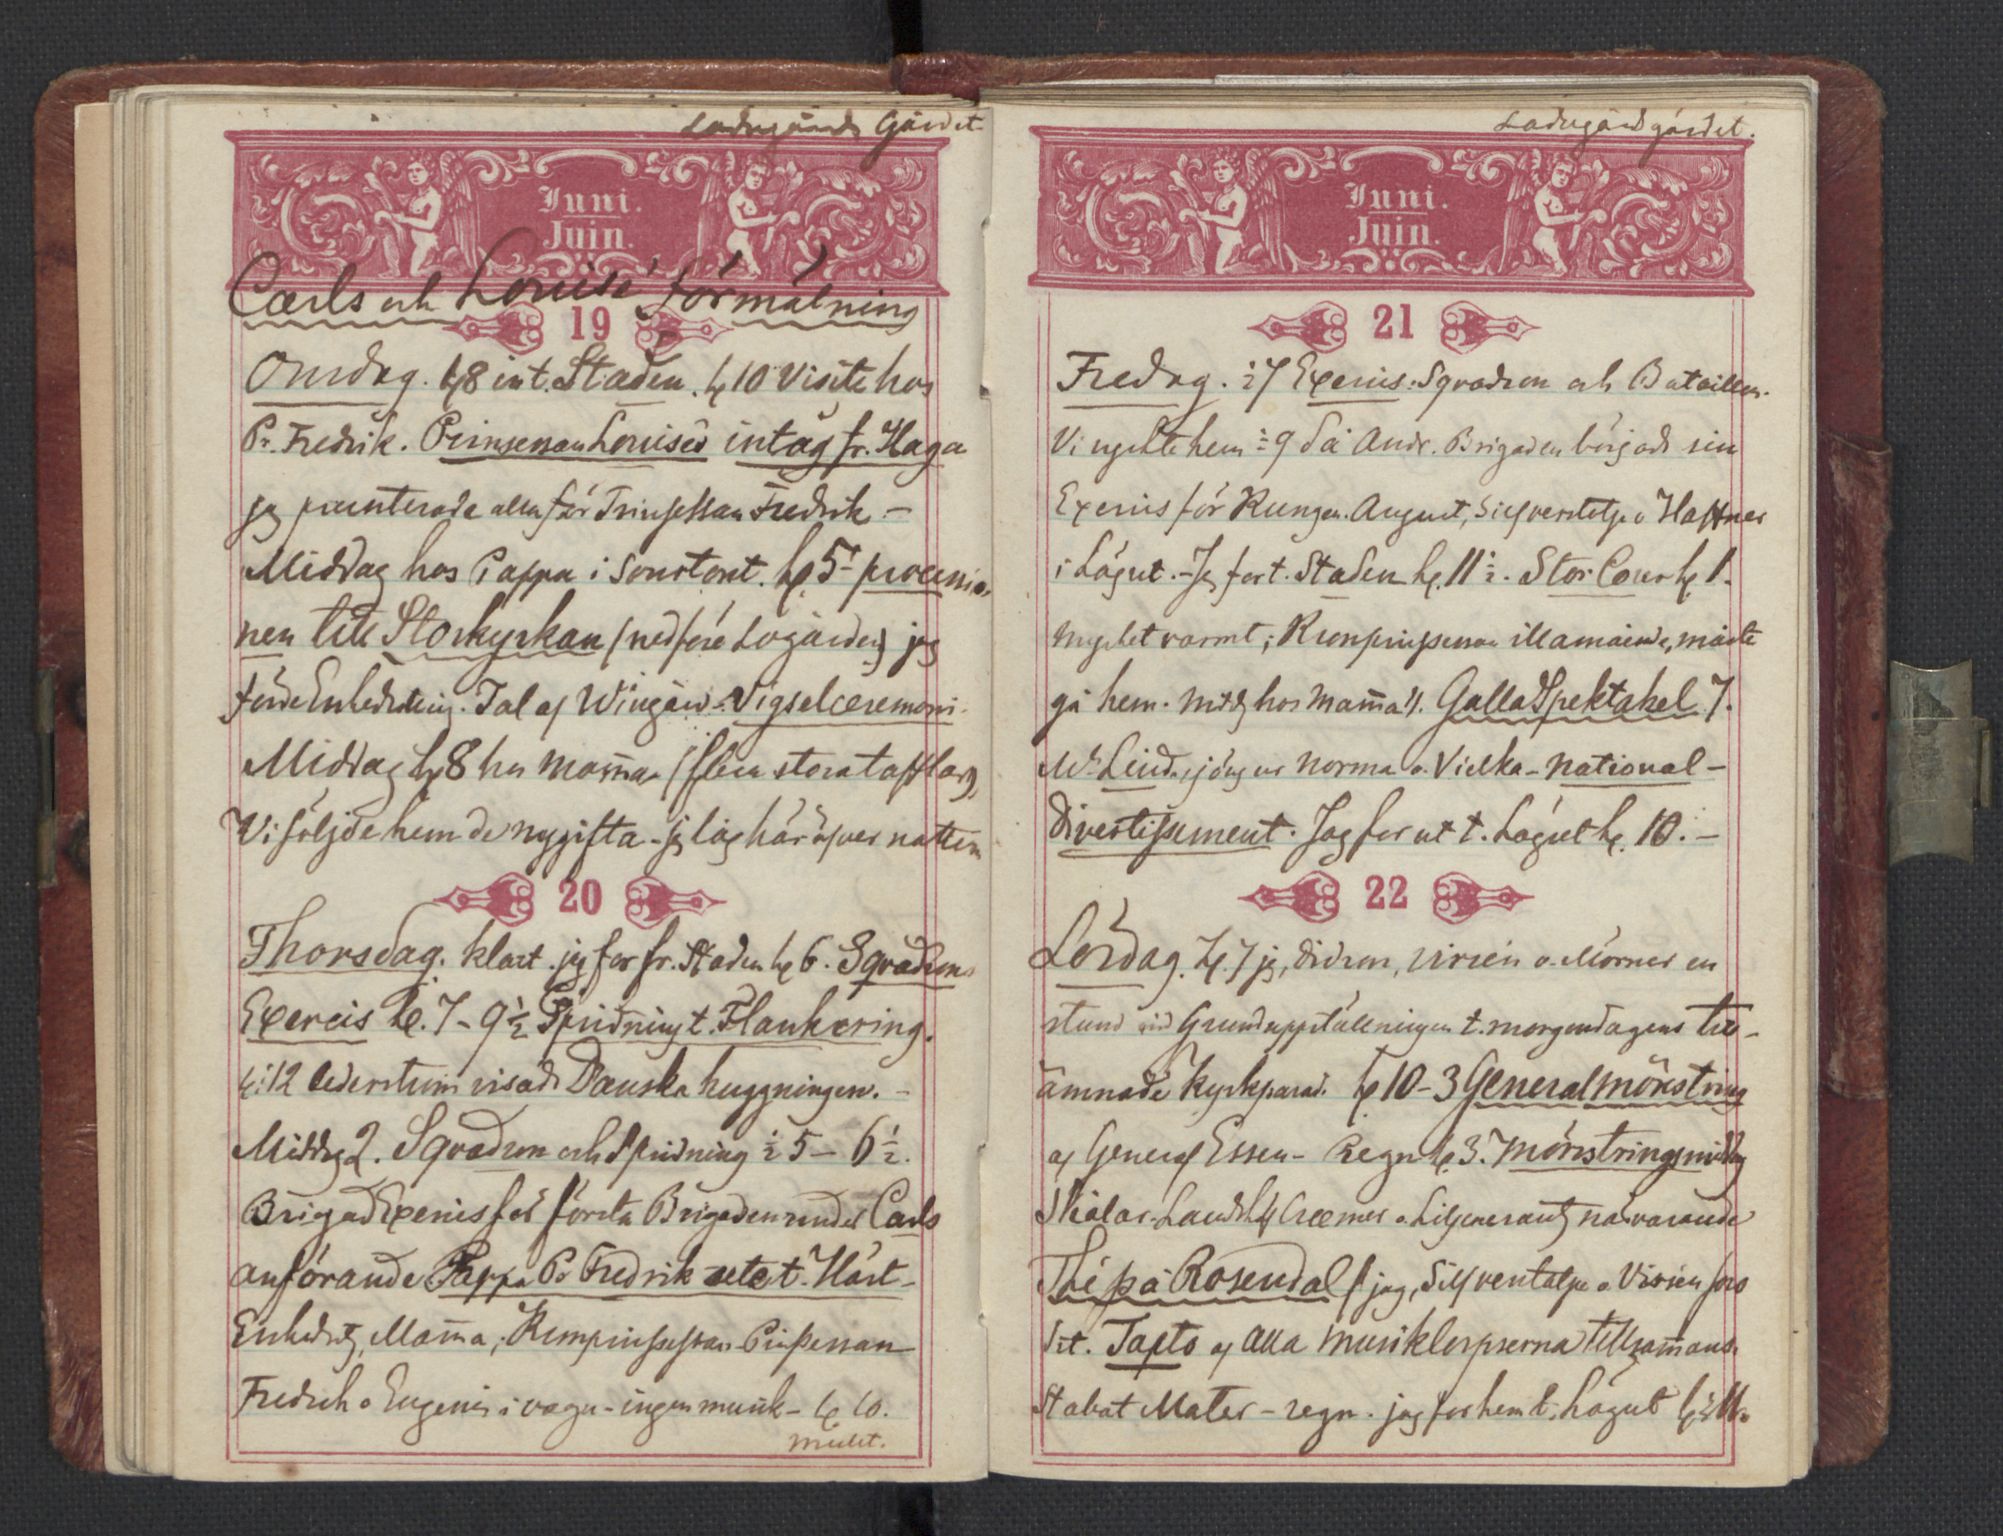 Ladugårds Gärdet
Juni.
Juin.
Carls och Louises förmälning
19
Onsdag. kl 8 in t. Staden. kl 10 Visite hos
Pr. Fredrik. Prinsessan Louises intåg fr. Haga
jg presenterade alla för Prinsessan Fredrik –
Middag hos Pappa i kl. 5 processio-
nen till Storkyrkan (nedföre Logården) jag
förde Enkedrotning. Tal af Wingård. Vigselceremoni.
Middag kl 8 hos Mamma (flera stora tafflar),
Vi följde hem de nygifta – jg låg här öfver natten
20
Thorsdag. klart. jg for fr. Staden kl 6. Sqvadrons
Exercis kl. 7 – 9 ½ Spridning t. Flankering.
kl: 12 Cederström visade Danska huggningen. –
Middag 2. Sqvadron och Spridning ½ 5 – 6 ½.
Brigad Exercis för första Brigaden under Carls
anförande Pappa Pr Fredrik ute t. Häst –
Enkedrtg, Mamma, Kronprinsessan Prinsessan
Fredrik o Eugenie i vagn – ingen musik – kl 10.
mulet.
Ladugårdsgärdet.
Juni.
Juin.
21
Fredag. ½ 7 Exercis: Sqvadron och Bataillon.
Vi ryckte hem ½ 9 då Andr. Brigaden började sin
Exercis för Kungen. August, Silfverstolpe o Haffner
i Lägret. – Jg for t. Staden kl. 11 ½. Stor Cour kl 1.
Mycket varmt; Kronprinsessan illamående, måste
gå hem. Middg hos Mamma 4. Galla Spektakel 7.
Mll Lind sjöng ur Norma o. Vielka – national –
divertissement. Jag for ut t. Lägret kl. 10. –
22
Lördag. kl. 7 jg, Didron, Virsén o. Mörner en
stund vid Grunduppställningen t. morgondagens till-
ämnade Kyrkparad. kl 10 – 3 Generalmönstring
af General Essen – Regn kl 3. Mönstringsmiddg
Skålar. Landshf Cræmer o. närvarande
Thé på Rosendal (jag, Silfverstolpe o Virsén foro
dit. Tapto af alla Musikkorpserna tillsammans.
Stabat Mater – regn. jag for hem t. Lägret kl ½ 11.